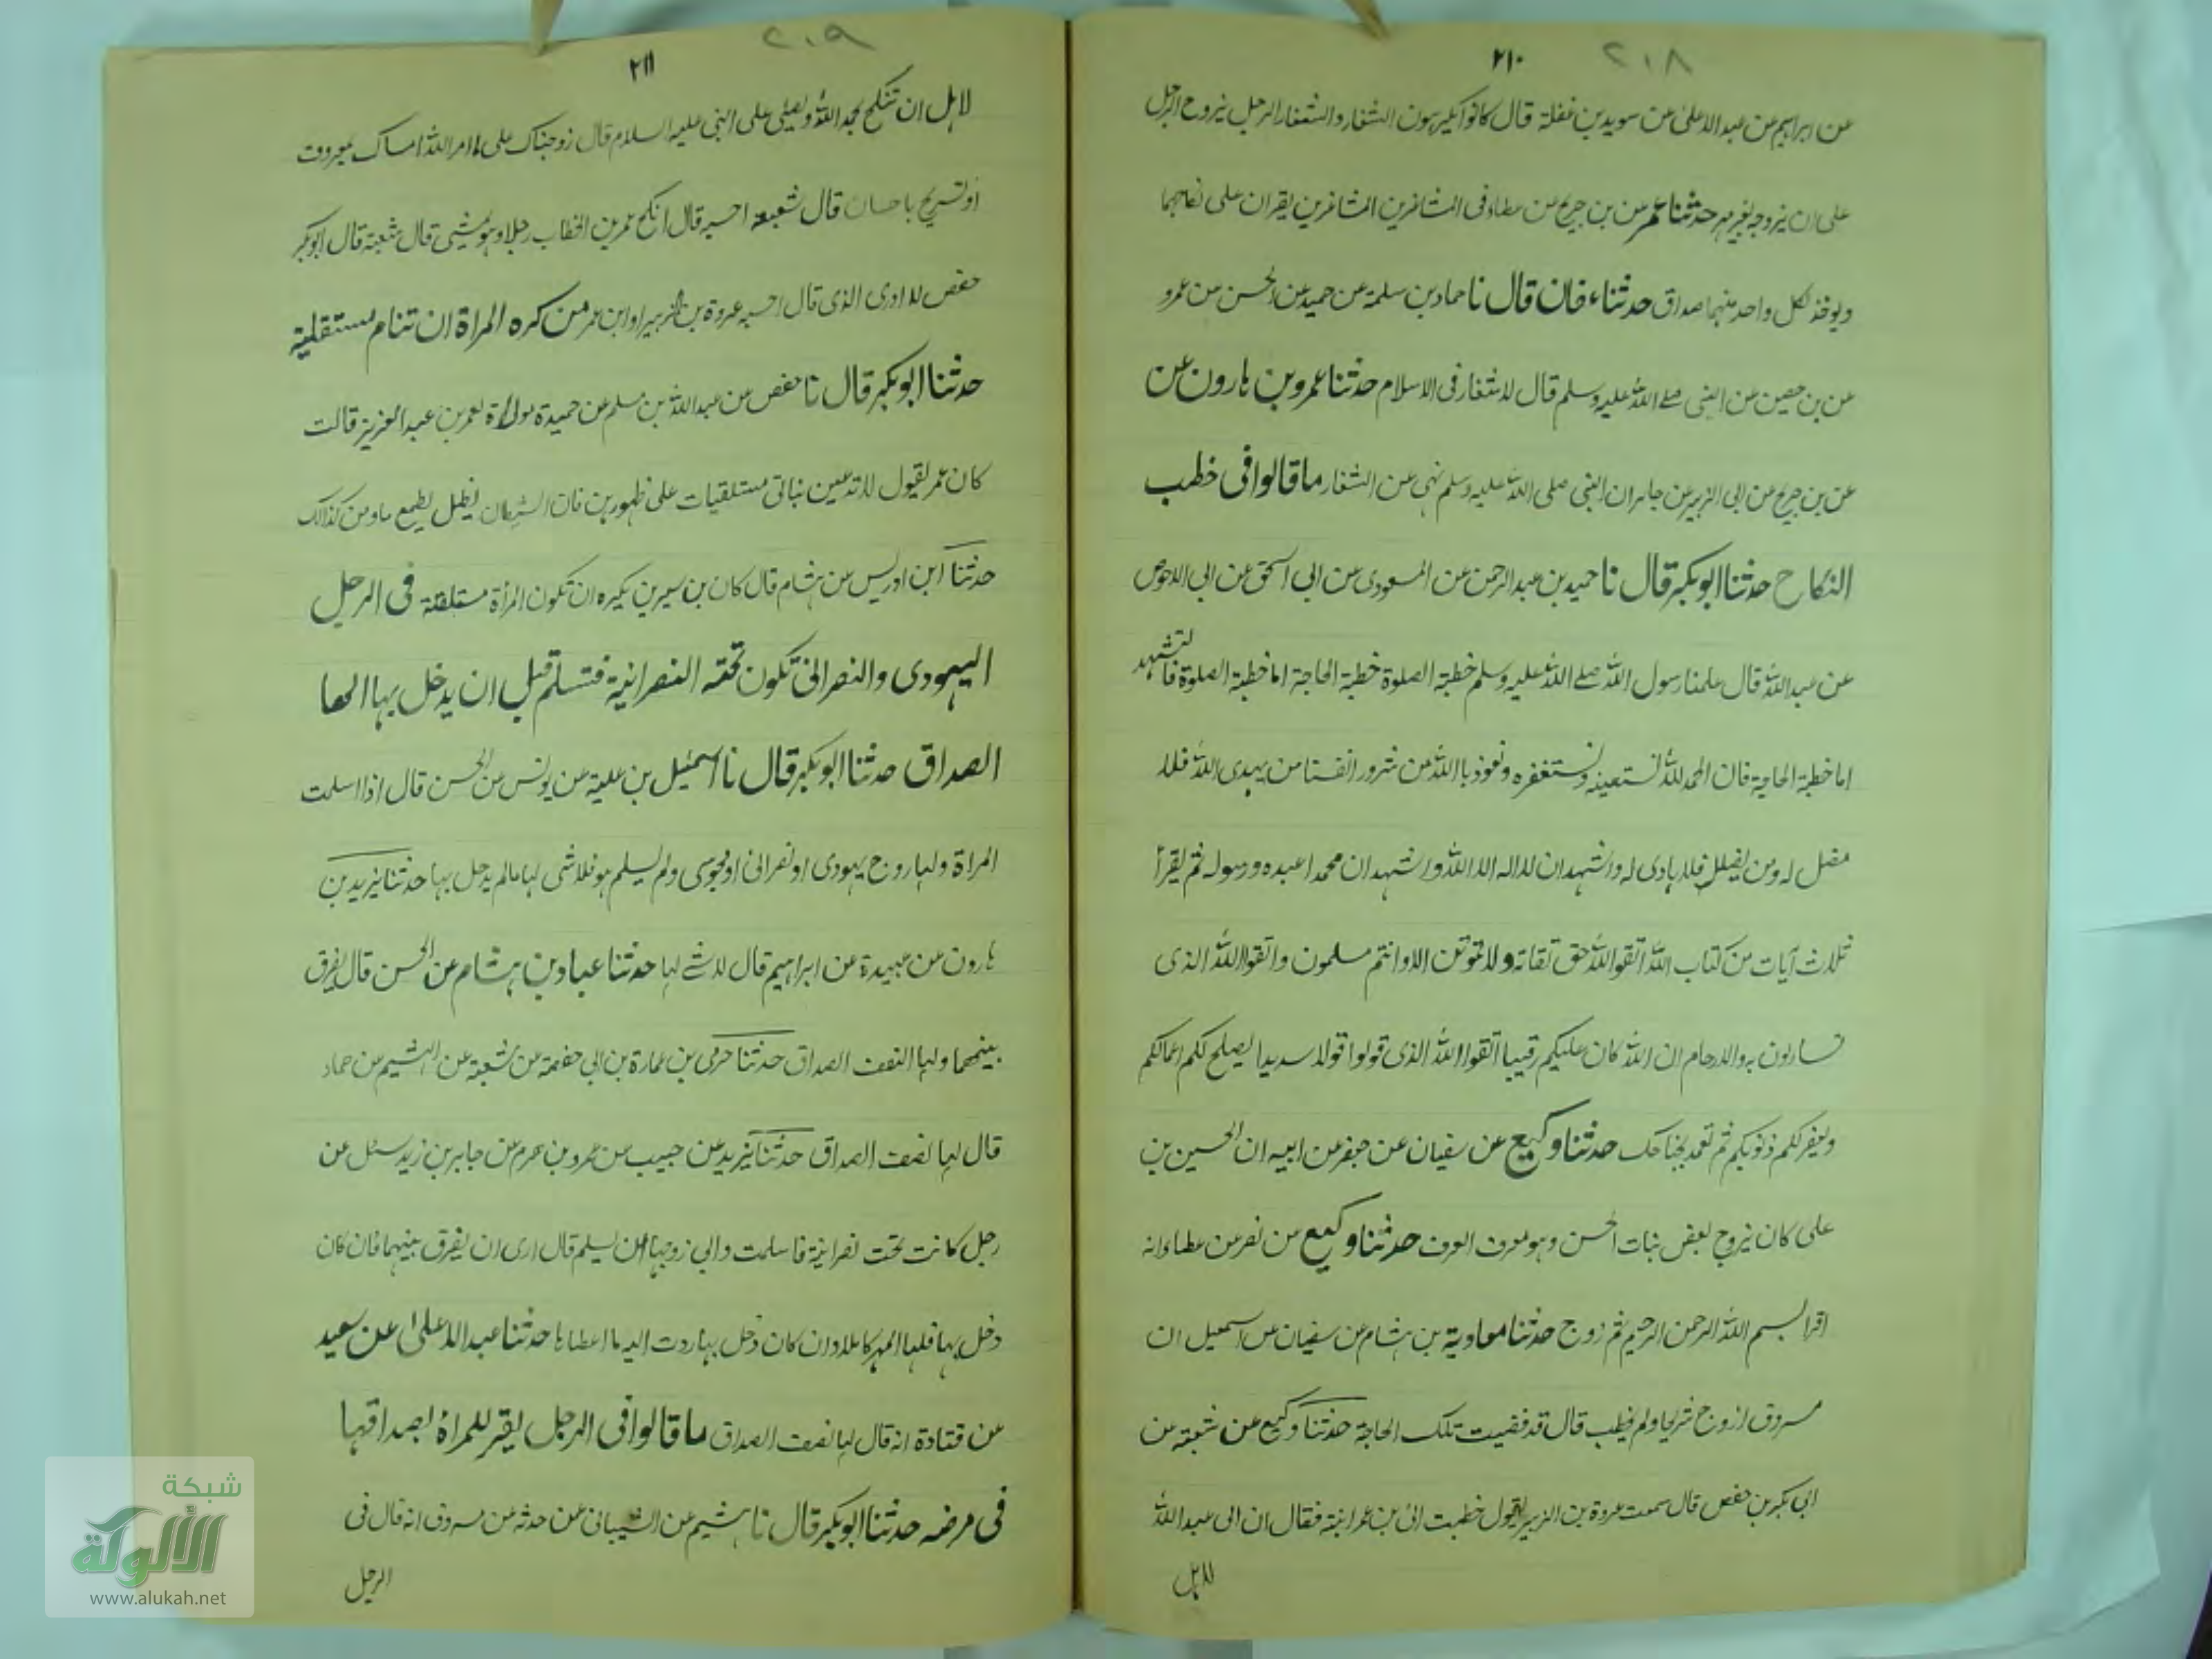 ٢١٠
٢١٨
عن ابراهيم عن عبد الاعلى عن سويد بن غفلة قال كانوا يكرهون الشغار والشغار الرجل يزوج الرجل
على ان يزوجه بغير مهر حدثنا عمر عن بن جريح عن عطاء فى المشاغرين يقران على نكاحهما
ويوخذ لكل واحد منهما صداق حدثنا عفان قال نا حماد بن سلمة عن حميد عن الحسن عن عمرو
عن بن حصين عن النبى صلے الله عليه وسلم قال لا شغار فى الاسلام حدثنا عمرو بن هارون عن
عن بن جريح عن ابى الزبير عن جابر ان النبى صلى الله عليه وسلم نهى عن الشغار ما قالوا فى خطب
النكاح حدثنا ابو بكر قال نا حميد بن عبد الرحمن عن المسعودى عن ابى اسحق عن ابى الاحوص
عن عبد الله قال علمنا رسول الله صلے الله عليه وسلم خطبة الصلوة خطبة الحاجة اما خطبة الصلوة فالتشهد
اما خطبة الحاجة فان الحمد لله نستعينه ونستغفره ونعوذ بالله من شرور انفسنا من يهدى الله فلا
مضل له ومن يضلل فلا هادى له واشهد ان لا اله الا الله واشهد ان محمدا عبده ورسوله ثم يقرأ
ثلاث آيات من كتاب الله اتقوا الله حق تقاته ولا تموتن الا وانتم مسلمون واتقوا الله الذى
تساءلون به والارحام ان الله كان عليكم رقيبا اتقوا الله الذى قولوا قولا سديدا يصلح لكم اعمالكم
ويغفر لكم ذنوبكم ثم تعمد بحاجتك حدثنا وكيع عن سفيان عن جعفر عن ابيه ان الحسين بن
على كان يزوج بعض بنات الحسن وهو يعرف العرف حدثنا وكيع عن عن عطاء انه
اقرا بسم الله الرحمن الرحيم ثم زوج حدثنا معاوية بن هشام عن سفيان عن اسمعيل ان
مسروق ازوج شريحا ولم يخطب قال قد قضيت تلك الحاجة حدثنا وكيع عن شعبة عن
ابى بكر بن حفص قال سمعت عروة بن الزبير يقول خطبت الى بن عمر ابنته فقال ان ابى عبد الله
لاهل
٢١١
٢٠٩
لاهل ان تنكح بحمد الله ويصلى على النبى عليه السلام قال زوجناك على ما امر الله امساك بمعروف
او تسريح باحسان قال شعبة احسبه قال انكح عمر بن الخطاب رجلا وهو يمشى قال شعبة قال ابو بكر
حفص لا ادرى الذى قال احسبه عروة بن الزبير او ابن عمر من كره المراة ان تنام مستقلية
حدثنا ابو بكر قال نا حفص عن عبد الله بن مسلم عن حميدة مولاة لعمر بن عبد العزيز قالت
كان عمر يقول لا تدعين بناتى مستلقيات على ظهورهن فان الشيطان يظل يطمع ما دمن كذالك
حدثنا ابن ادريس عن هشام قال كان بن سيرين يكره ان تكون المرأة مستلقية فى الرجل
اليهودى والنصرانى تكون تحته النصرانية فتسلم قبل ان يدخل بها الها
الصداق حدثنا ابو بكر قال نا اسمعيل بن علية عن يونس عن الحسن قال اذا اسلمت
المراة ولها زوج يهودى او نصرانى او مجوسى ولم يسلم هو فلا شى لها مالم يدخل بها حدثنا يزيد بن
هارون عن عبيدة عن ابراهيم قال لا شے لها حدثنا عباد بن هشام عن الحسن قال يفرق
بينهما ولها النصف الصداق حدثنا حرمى بن عمارة بن ابى حفصة عن شعبة عن الهشيم عن حماد
قال لها نصف الصداق حدثنا يزيد عن حبيب عن عمرو بن هرم عن جابر بن زيد سئل عن
رجل كانت تحت نصرانية فاسلمت وابى زوجها ان يسلم قال ارى ان يفرق بينهما فان كان
دخل بها فلها المهر كاملا وان كان دخل بها ردت اليه ما اعطاها حدثنا عبد الاعلى عن سعيد
عن قتادة انه قال لها نصف الصداق ما قالوا فى الرجل يقر للمراة بصداقها
فى مرضه حدثنا ابو بكر قال نا هشيم عن الشيبانى عمن حدثه عن مسروق انه قال فى
الرجل
شبكة
الألوكة
www.alukah.net